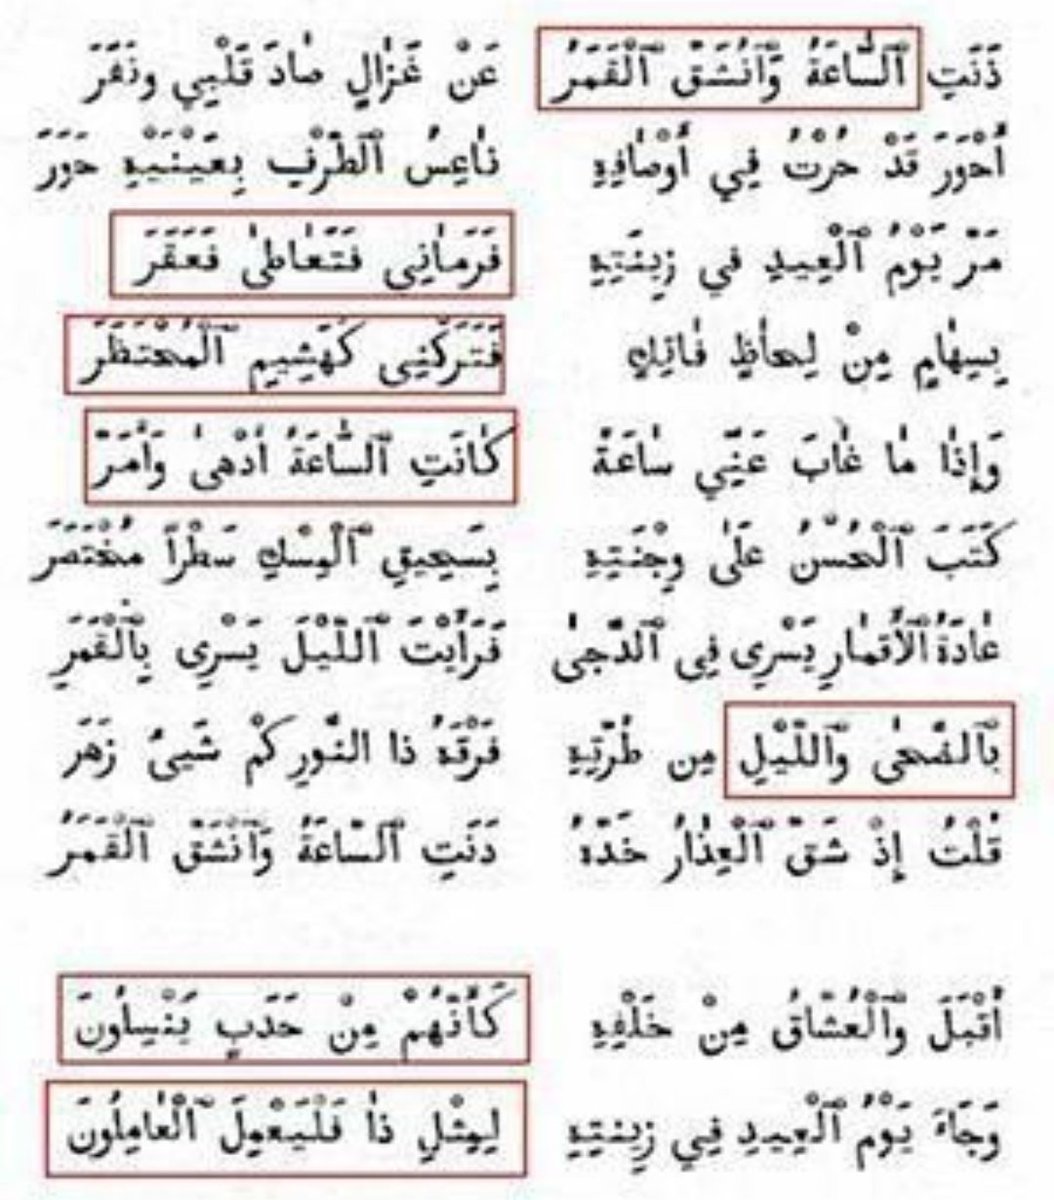 دَنَتِ ٱلسَّاعَةُ وَٱنْشَقَّ ٱلْقَمَرُ عَنْ غَزَالٍ صَادَ قَلْبِي ونَفَرَ
أَحْوَرَ قَدْ حُرْتُ فِي أَوْصَافِهِ نَاعِسُ ٱلطَّرْفِ بِعَيْنَيْهِ حَوَر
مَرَّ يَوْمُ ٱلْعِيدِ في زِينَتِهِ فَرَمَانِى فَتَعَاطىٰ فَعَقَرَ
بِسِهَامٍ مِنْ لِحَاظٍ فَاتِكِ فَتَرَكْنِى كَهَشِيمِ ٱلْمُحْتَظَرَ
وَإِذَا مَا غَابَ عَنِّي سَاعَةً كَانَتِ ٱلسَّاعَةُ أَدْهىٰ وَأَمَرَّ
كَتَبَ ٱلْحُسْنُ عَلَى وجْنَتِهِ بِسَحِيقِ ٱلْمِسْكِ سَطْرًا مُخْتَصَر
عَادَةُ ٱلْأَقمَارِ يَسْرِي فِى ٱلدُّجىٰ فَرَأَيْتَ ٱللَّيْلَ يَسْرِي بِٱلْقَمَرِ
بِٱلضُّحَىٰ وَٱللَّيْلِ مِن طُرَّتِهِ فَرْقَهُ ذا النُّورِ كَمْ شَيئٌ زَهَر
قُلْتُ إِذْ شَقَّ ٱلْعِذَارُ خَدَّهُ دَنَتِ ٱلسَّاعَةُ وَٱنْشَقَّ ٱلْقَمَرُ
أَقْبَلَ وَٱلْعُشَّاقُ مِنْ خَلْفِهِ كَأَنَّهُمْ مِنْ حَدَبٍ يَنْسِلُونَ
وَجَاءَ يَوْمُ ٱلْعِيدِ فِي زِينَتِهِ لِمِثْلِ ذَا فَلْيَعْمِلَ ٱلْعَامِلُونَ